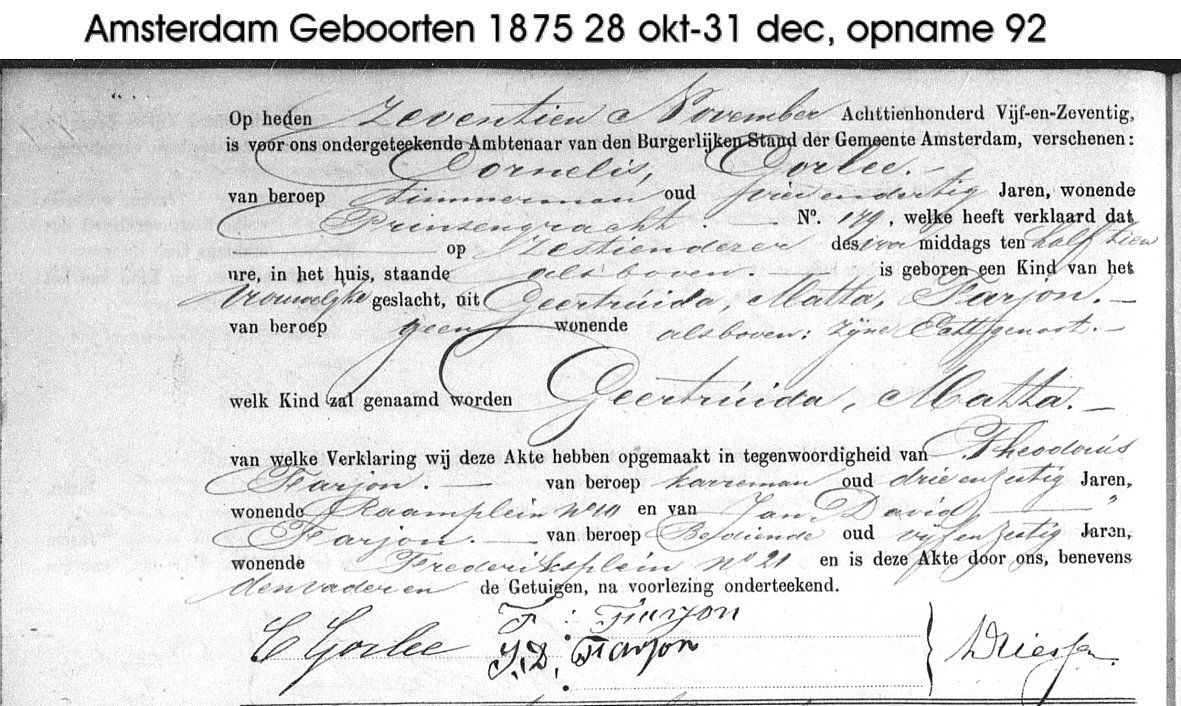 Amsterdam Geboorten 1875 28 okt-31 dec, opname 92
Op heden Zeventien November Achttienhonderd Vijf-en-Zeventig,
is voor ons ondergeteekende Ambtenaar van den Burgerlijken Stand der Gemeente Amsterdam, verschenen:
Cornelis, Gorlee.—
van beroep timmerman oud vierendertig Jaren, wonende
Prinsengracht.— No. 179, welke heeft verklaard dat
— op Zestiendezer des middags ten half tien
ure, in het huis, staande als boven.— is geboren een Kind van het
Vrouwelijke geslacht, uit Geertruida, Matta, Farjon.—
van beroep geen wonende als boven: zijne Echtgenoot.—
welk Kind zal genaamd worden Geertruida, Matta.—
van welke Verklaring wij deze Akte hebben opgemaakt in tegenwoordigheid van Theodorus
Farjon.— van beroep karreman oud drieenzestig Jaren,
wonende Raamplein No 10 en van Jan David, —"
Farjon.— van beroep Bediende oud vijfenzestig Jaren,
wonende Frederiksplein No 21 en is deze Akte door ons, benevens
den vader en de Getuigen, na voorlezing onderteekend.
C Gorlee T: Farjon
J. D. Farjon